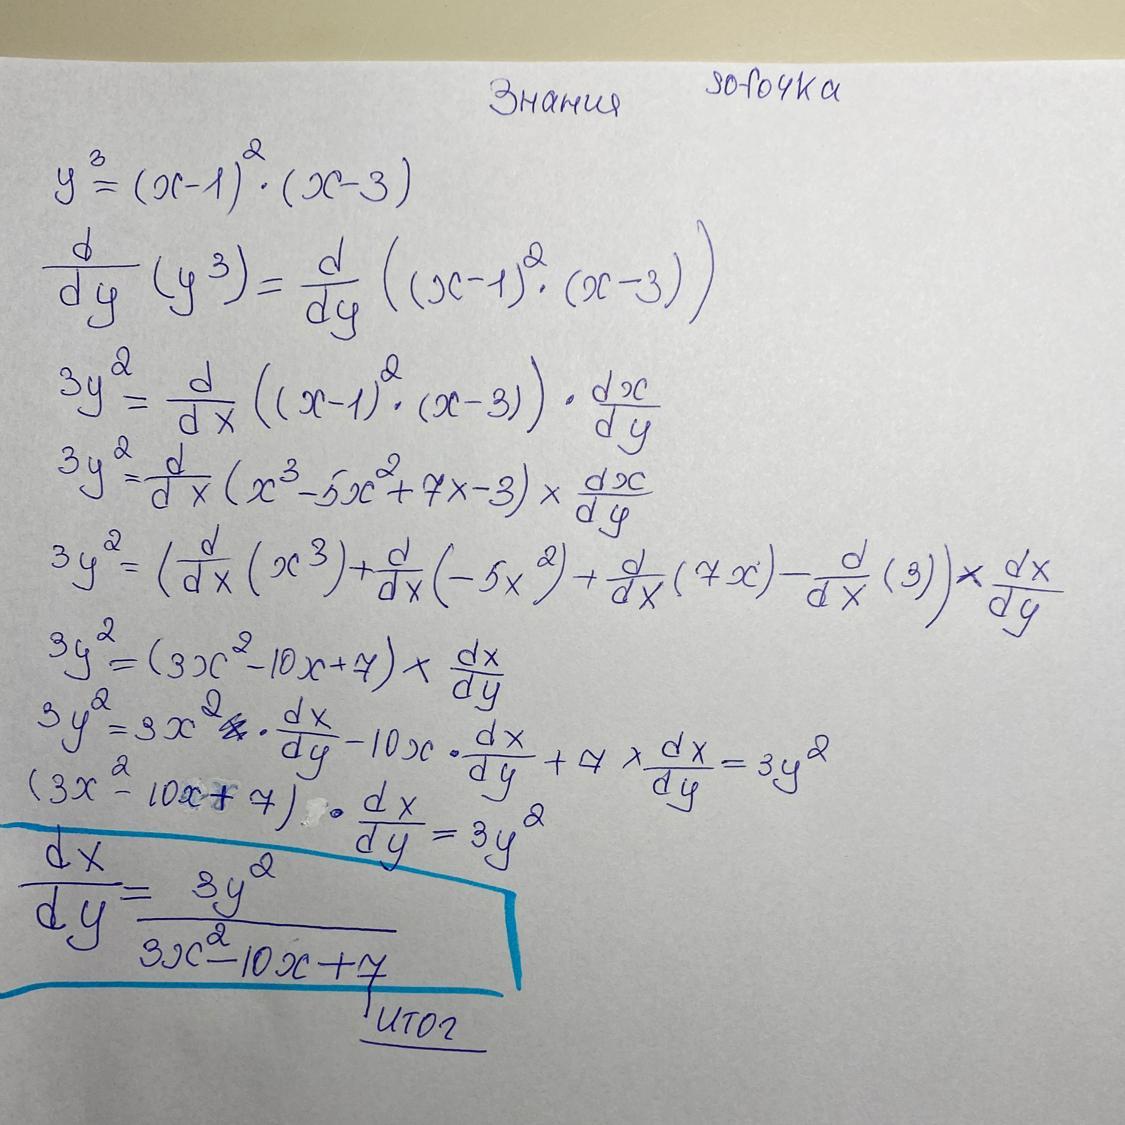 Знания
y³ = (x-1)² · (x-3)
d/dy (y³) = d/dy ((x-1)² · (x-3))
3y² = d/dx ((x-1)² · (x-3)) · dx/dy
3y² = d/dx (x³ - 5x² + 7x - 3) × dx/dy
3y² = (d/dx (x³) + d/dx (-5x²) + d/dx (7x) - d/dx (3)) × dx/dy
3y² = (3x² - 10x + 7) × dx/dy
3y² = 3x² · dx/dy - 10x · dx/dy + 7 × dx/dy = 3y²
(3x² - 10x + 7) · dx/dy = 3y²
dx/dy = 3y²/(3x² - 10x + 7)
итог